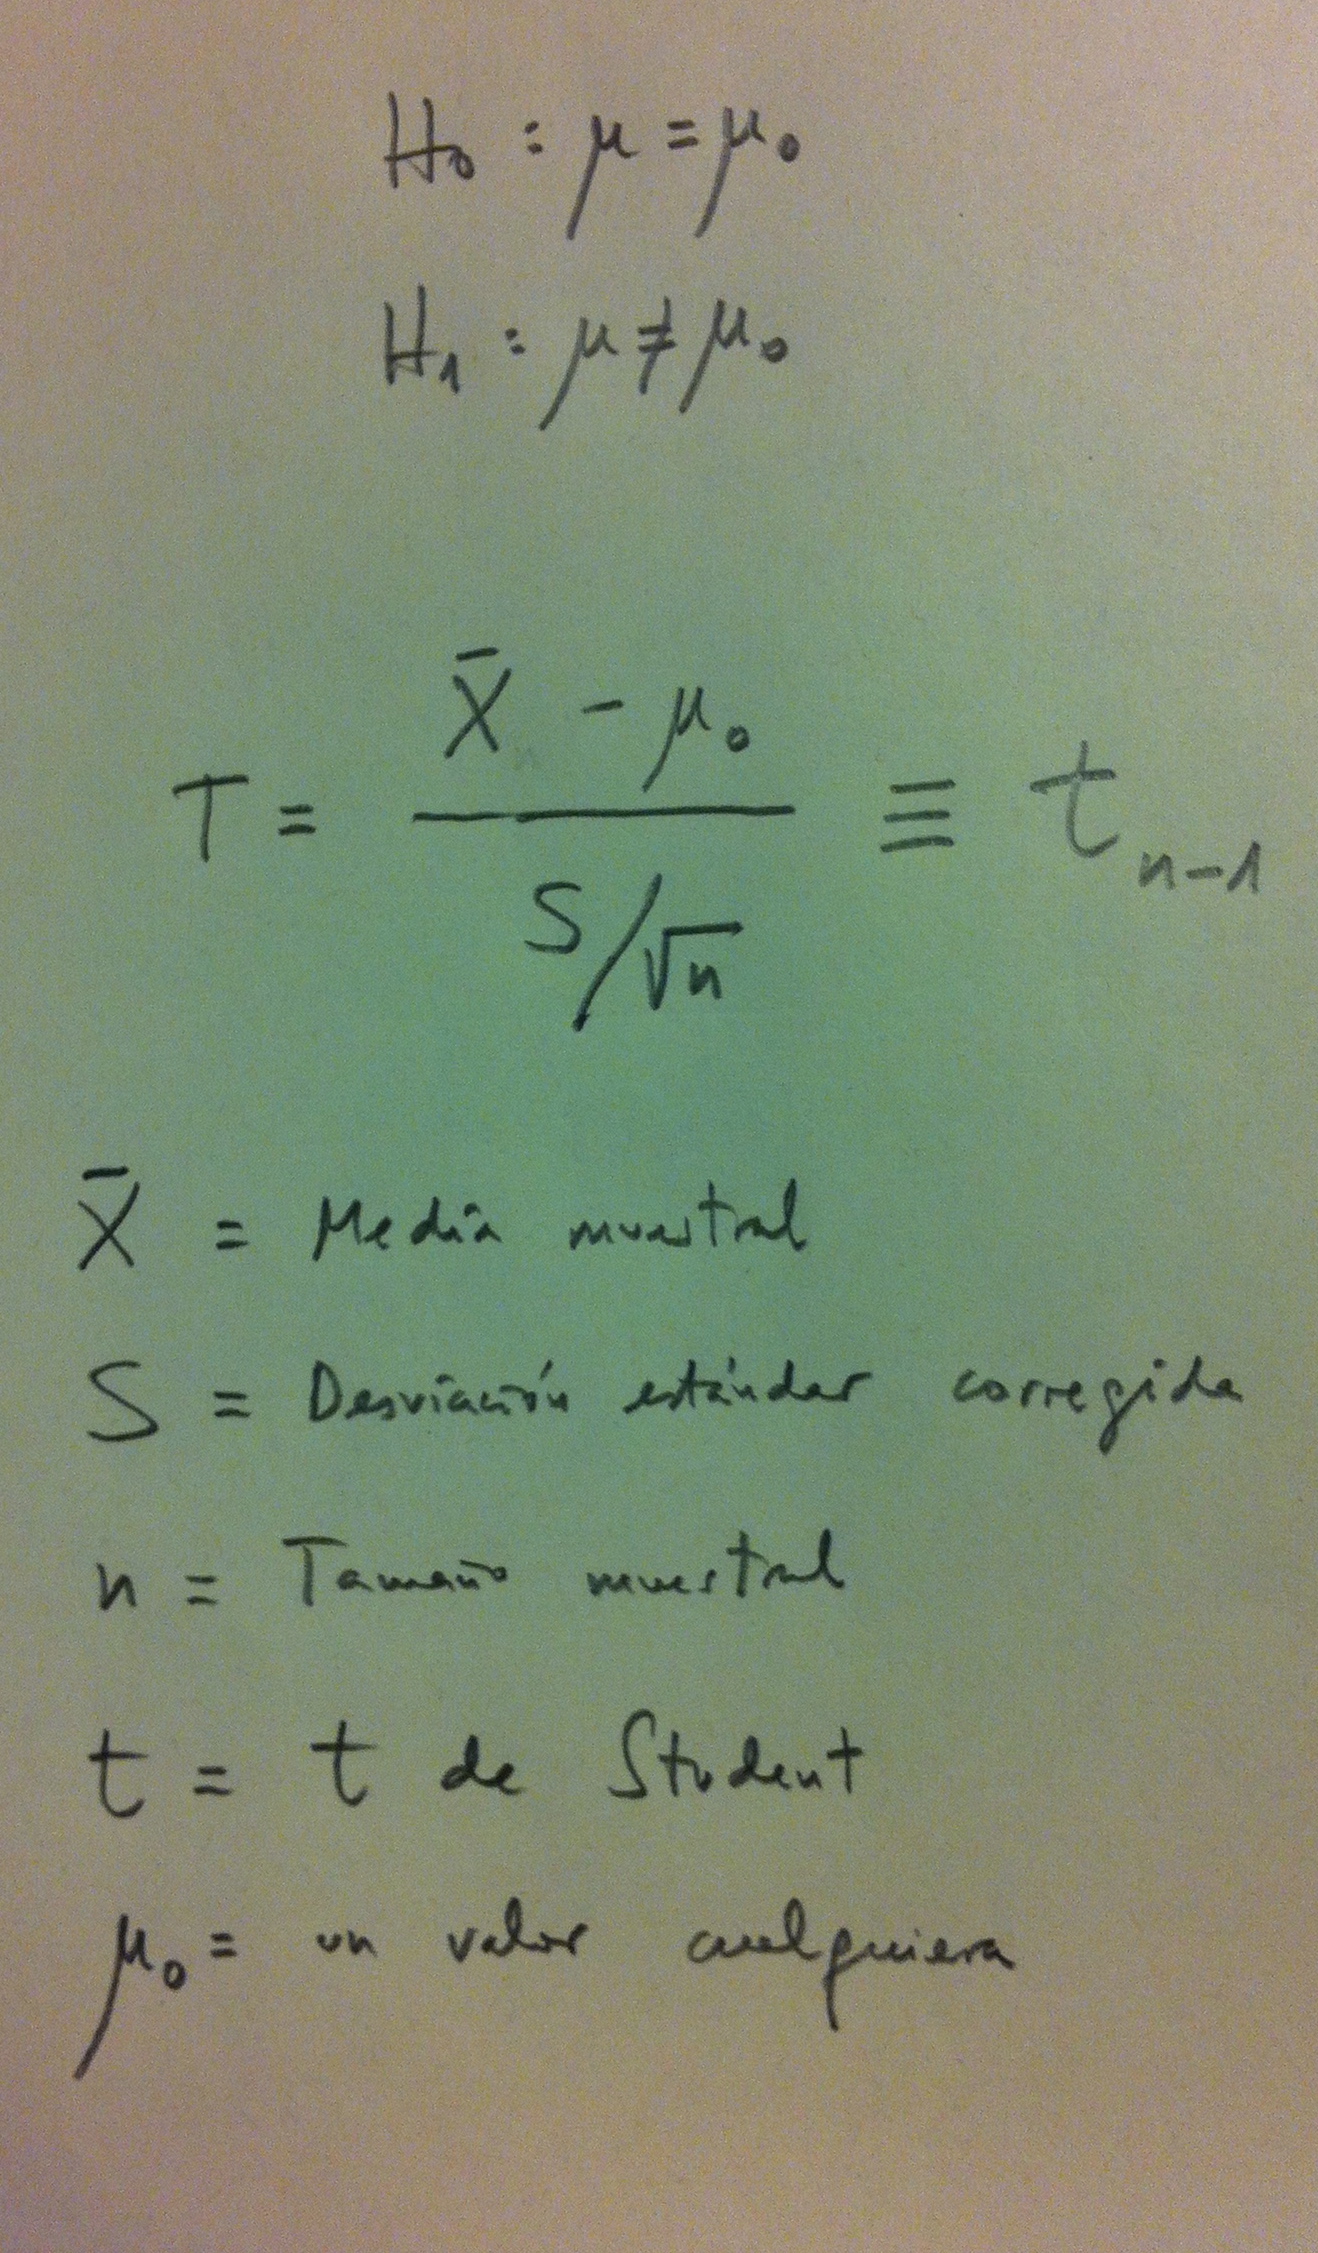 H₀ : μ = μ₀
H₁ : μ ≠ μ₀
X̄ - μ₀
T = ――― ≡ t n-1
S/√n
X̄ = Media muestral
S = Desviación estándar corregida
n = Tamaño muestral
t = t de Student
μ₀ = un valor cualquiera